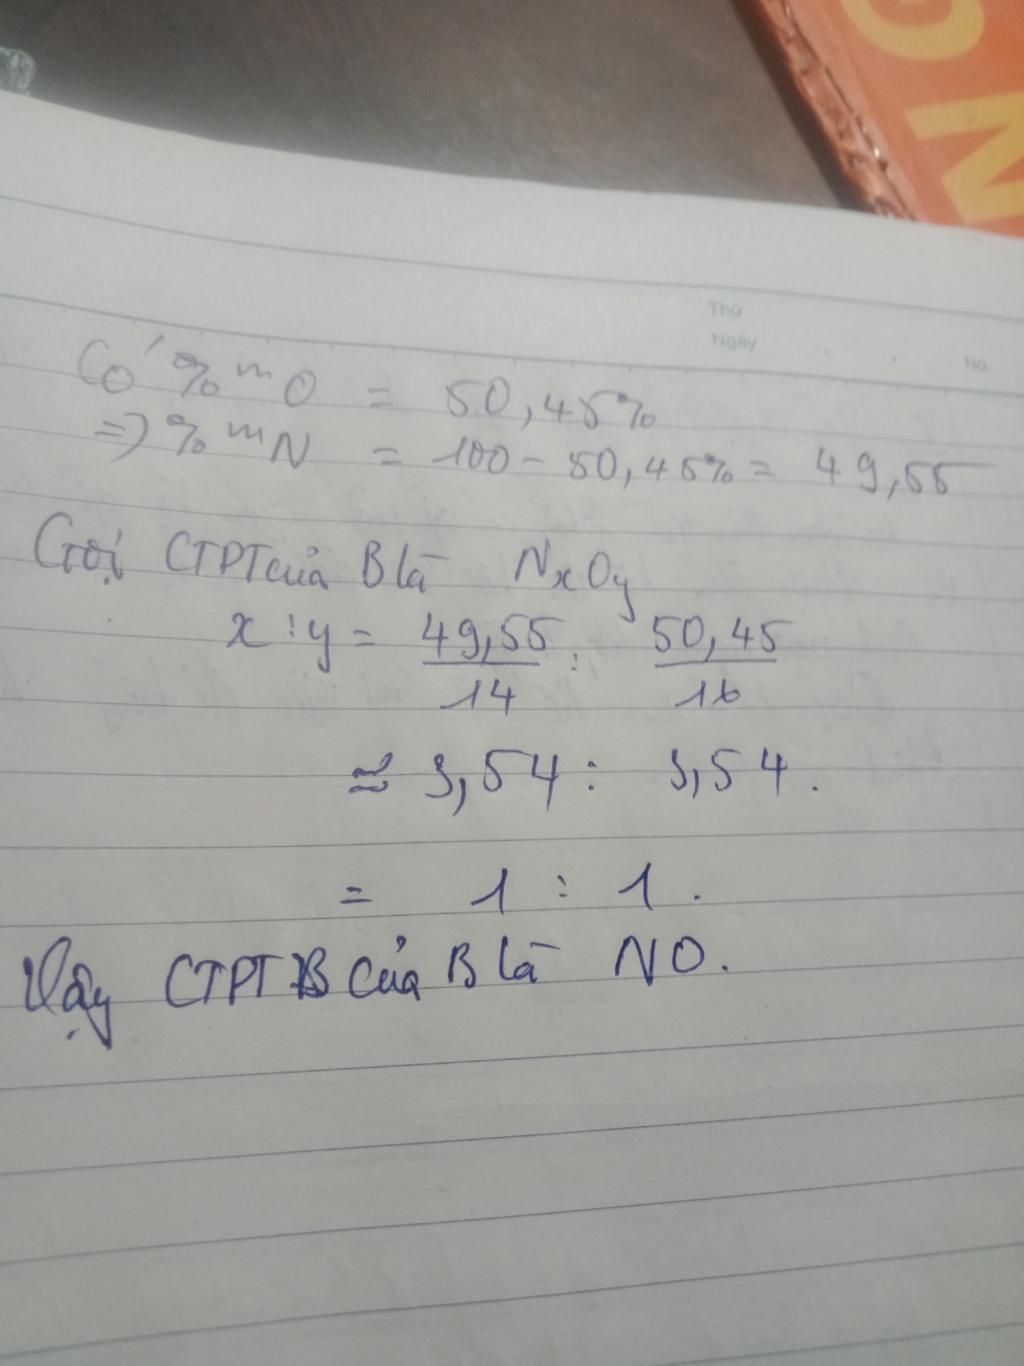 GN
Thứ
Ngày
No.
Có %mO = 50,45%
=> %mN = 100 - 50,45% = 49,55
Gọi CTPT của B là NxOy
x : y = 49,55/14 : 50,45/16
≈ 3,54 : 3,54.
= 1 : 1.
Vậy CTPT B của B là NO.